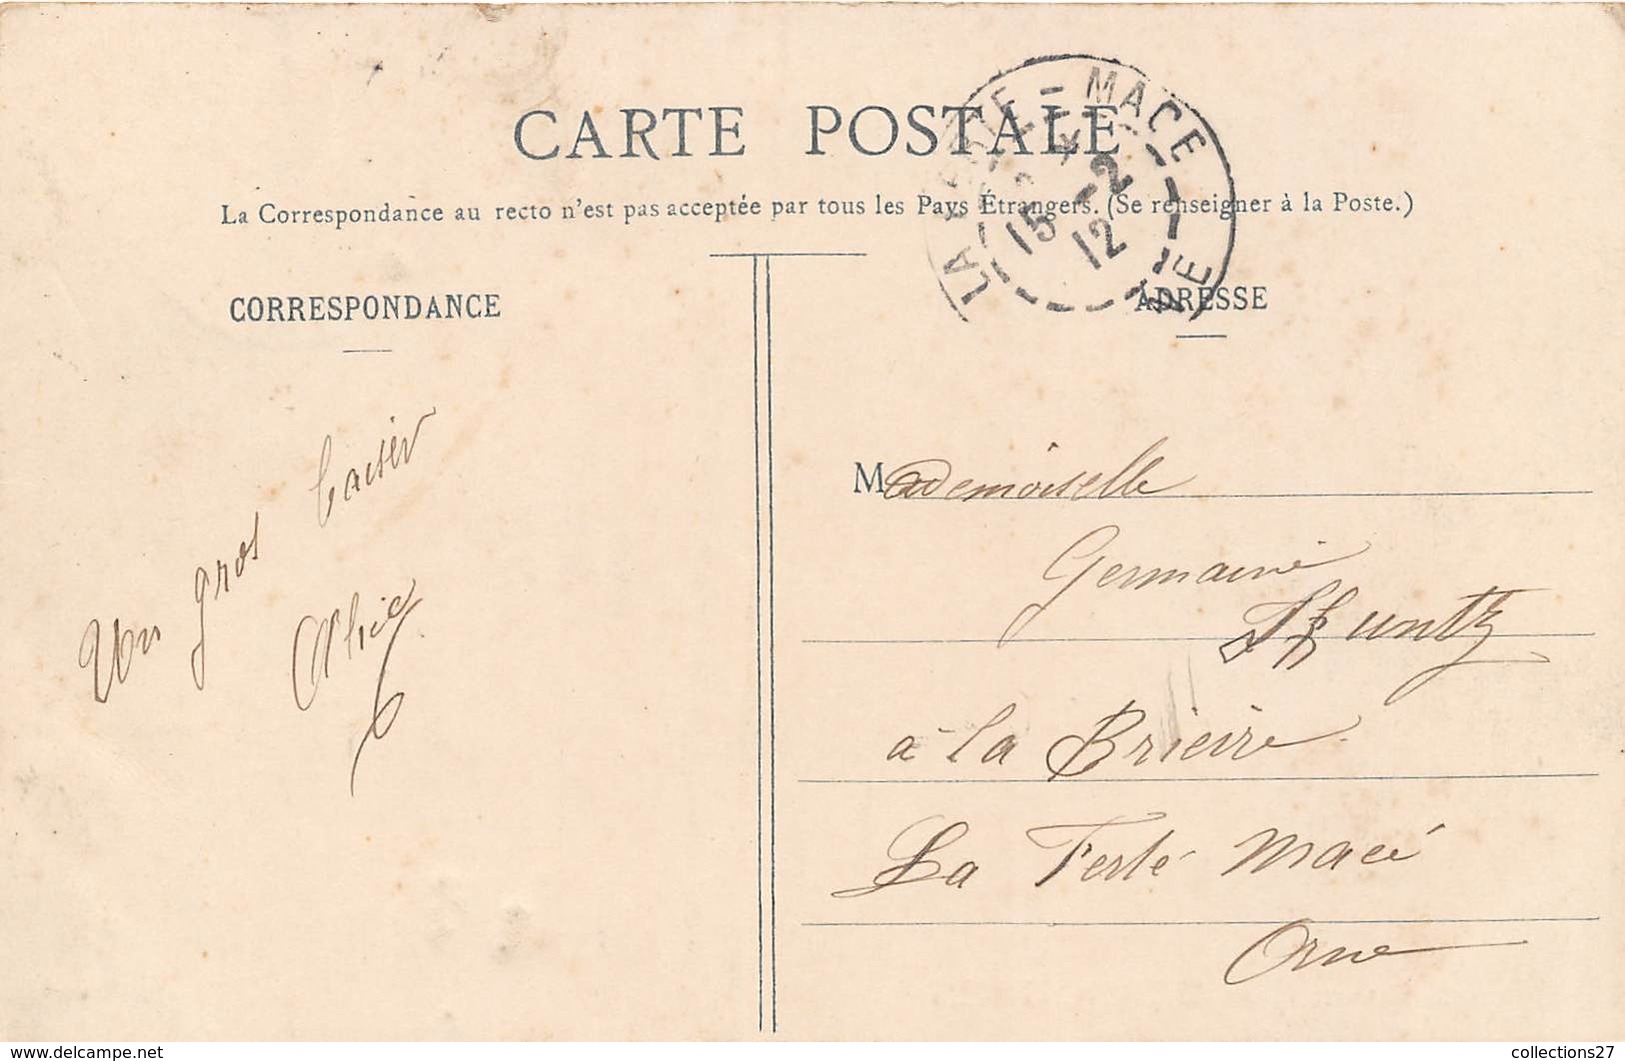 CARTE POSTALE
La Correspondance au recto n'est pas acceptée par tous les Pays Étrangers. (Se renseigner à la Poste.)
LA FERTE-MACE
15 -2
12
CORRESPONDANCE
ADRESSE
Un gros baiser
Mademoiselle
Germaine
à la Brieire
La Ferté Macé
Orne
collections27